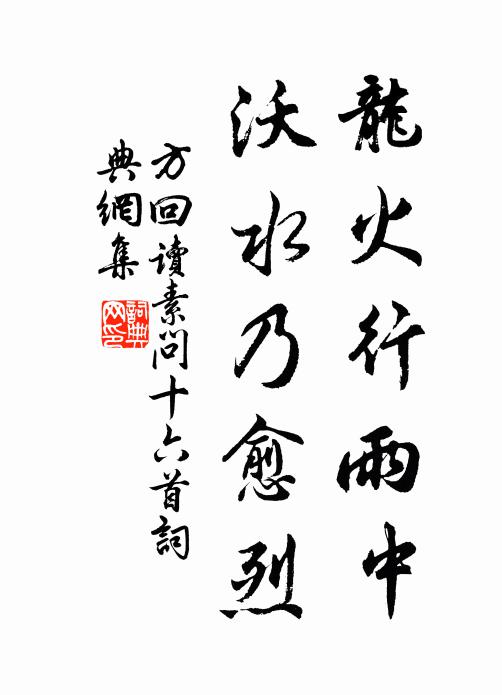 龍火行雨中
沃水乃愈烈
方回讀素問十六首詞
典網集
詞典網印